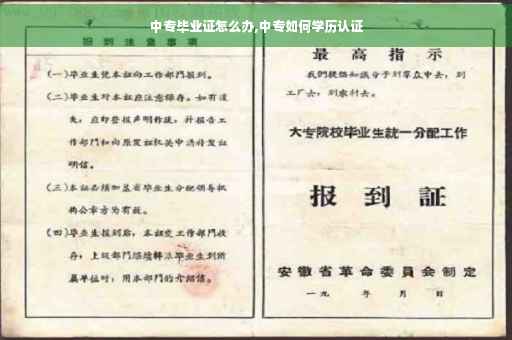 中专毕业证怎么办,中专如何学历认证
报到注意事项
(一)毕业生凭本证向工作部门报到。
(二)毕业生对本证应注意保存。如有遗
失,应即登报声明作废,并报告工
作部门和向原发证机关申请补发证
明信。
(三)本证必须加盖省毕业生分配领导机
构公章方为有效。
(四)毕业生报到后,本证交工作部门收
存;上级部门
毕业生到所
属单位时,用本部门的介绍信。
最高指示
我们提倡知识分子到群众中去,到
工厂去,到农村去。
大专院校毕业生统一分配工作
报到证
安徽省革命委員会制定
一九 年 月 日